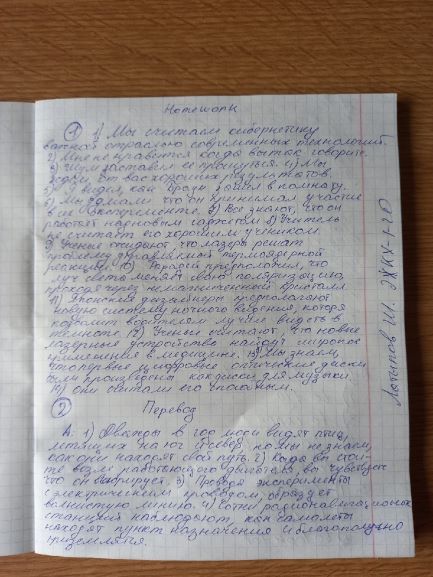 ① 1) Мы считаем кибернетику
важной отраслью современных технологий.
2) Мне не нравится когда вы так говорите.
3) Шум заставил ее проснуться. 4) Мы
ждем от вас хороших результатов.
5) Я видел, как вошел в комнату.
6) Мы думали что он принимал участие
в эксперименте. 7) Все знают, что он
работает над новым 8) Учитель
не считает его хорошим учеником.
9) Ученые ожидают что лазеры решат
проблему управляемой термоядерной
реакции. 10) Фарадей предположил, что
луч света может поляризацию,
проходя через кристалл
11) Японские дизайнеры предполагают
новую систему ночного видения, которая
позволит водителям лучше видеть в
темноте. 12) Ученые считают, что новые
лазерные устройства найдут широкое
применение в медицине. 13) Мы знаем,
что первые цифровые оптические диски
были произведены для музыки.
14) Они считали его способным.
② Перевод
A: 1) Дважды в год люди видят птиц,
летящих на юг и север но мы не знаем,
как они находят свой путь. 2) Когда вы стои-
те возле работающего двигателя, вы чувствуете
что он вибрирует. 3) Проводя эксперименты
с электрическим проводом,
волнистую линию. 4) Сотни радионавигационных
станций наблюдают, как самолеты
находят пункт назначения и благополучно
приземлятся.
Латыпов Ш.